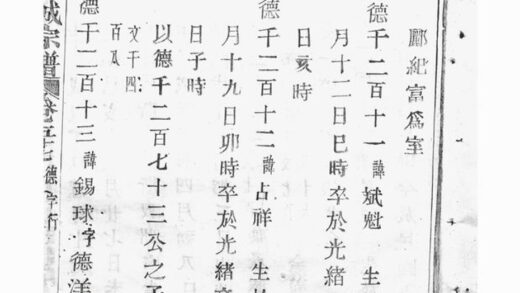 酈紀富爲室
德千二百十一諱斌魁 生
月十二日巳時卒於光緒
日亥時
德千二百十二諱占祥 生
月十九日卯時卒於光緒
日子時
以德千二百七十三公之子
文千四百瓜
德千二百十三諱錫球字德洋
宗譜 德字行